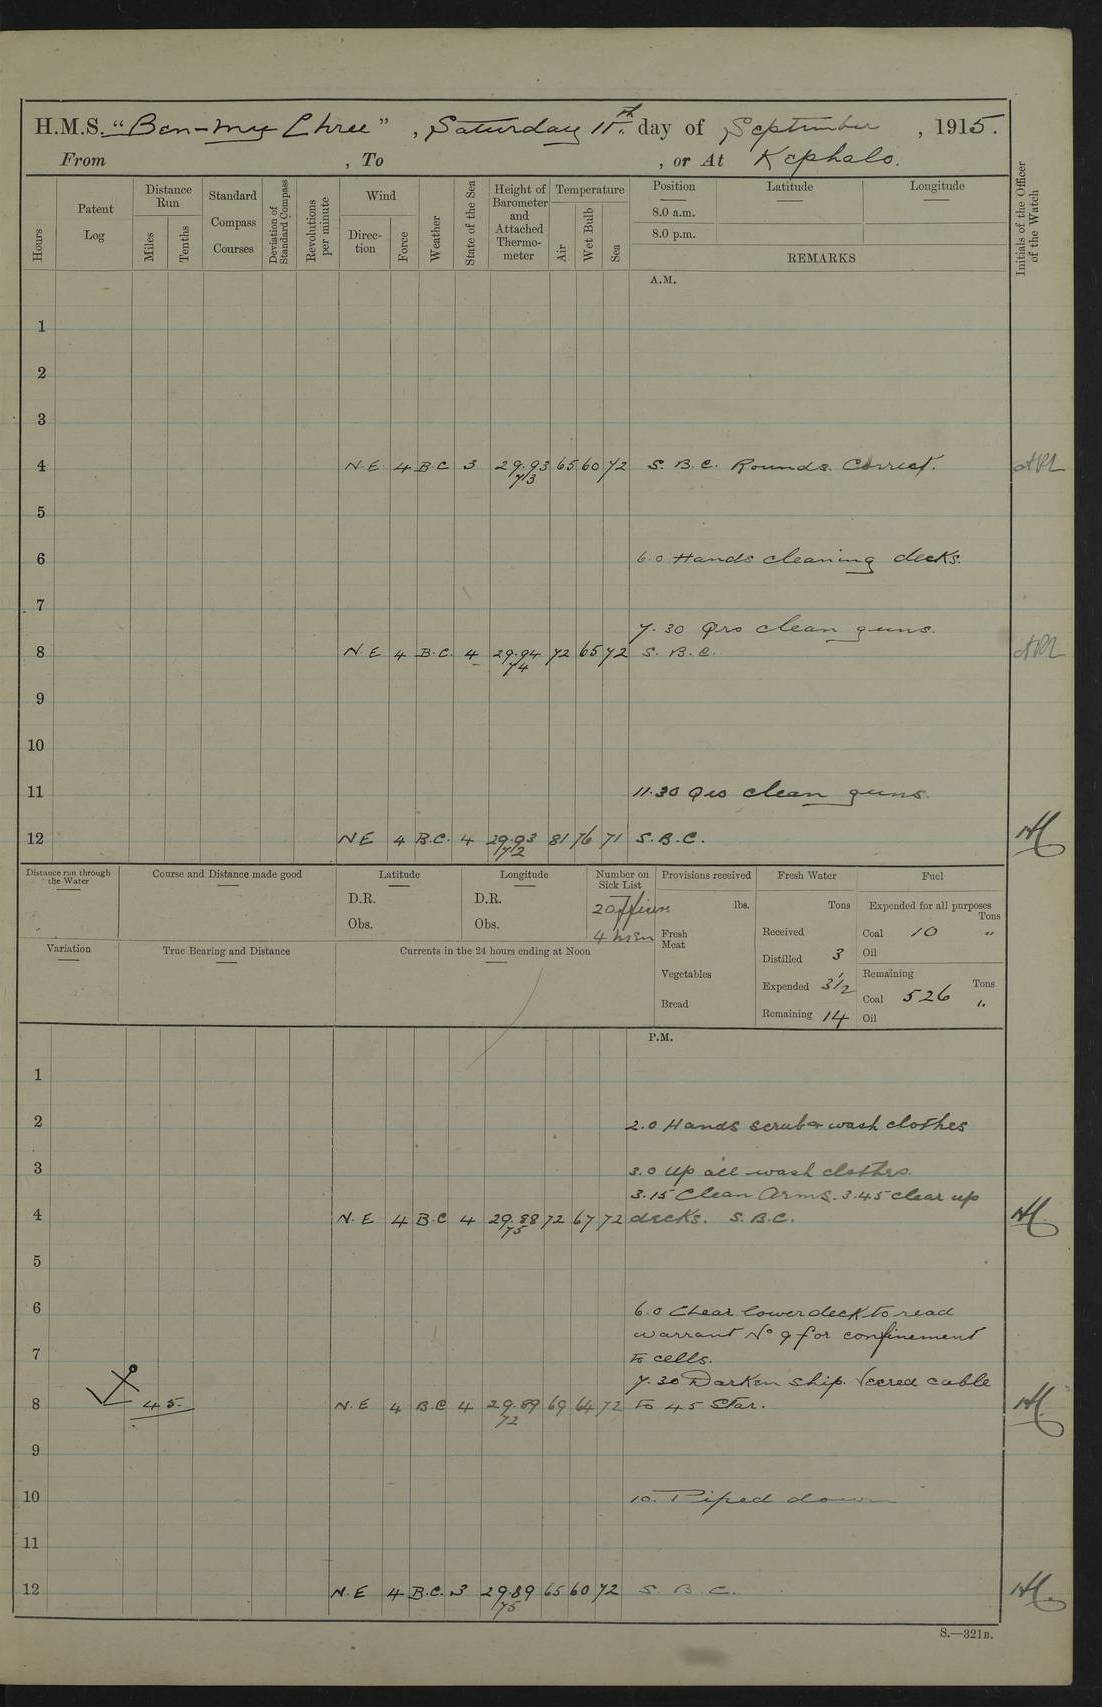 H.M.S. "Ben-my Chree", Saturday 11th. day of September, 1915.
From , To , or At Kephalo.
Hours
Patent Log
Distance Run
Miles
Tenths
Standard Compass Courses
Deviation of Standard Compass
Revolutions per minute
Wind
Direction
Force
Weather
State of the Sea
Height of Barometer and Attached Thermometer
Temperature
Air
Wet Bulb
Sea
Position
Latitude
Longitude
8.0 a.m.
8.0 p.m.
REMARKS
Initials of the Officer of the Watch
A.M.
1
2
3
4 N.E 4 B.C 3 29.93 65 60 72 S. B. C. Rounds. Correct.
73
5
6 6.0 Hands cleaning decks.
7
7.30 Qrs clean guns.
8 N E 4 B.C. 4 29.94 72 65 72 S. B. C.
74
9
10
11 11.30 Qrs clean guns.
12 N E 4 B.C. 4 29.93 81 76 71 S.B.C.
72
Distance run through the Water
Course and Distance made good
Latitude
D.R.
Obs.
Longitude
D.R.
Obs.
Number on Sick List
2 officers
4 men
Provisions received
lbs.
Fresh Meat
Vegetables
Bread
Fresh Water
Tons
Received
Distilled 3
Expended 3 1/2
Remaining 14
Fuel
Expended for all purposes
Tons
Coal 10 "
Oil
Remaining
Tons
Coal 526 "
Oil
Variation
True Bearing and Distance
Currents in the 24 hours ending at Noon
P.M.
1
2 2.0 Hands scrub & wash clothes
3 3.0 Up all wash clothes.
3.15 Clean Arms. 3.45 clear up
4 N.E 4 B.C 4 29.88 72 67 72 decks. S.B.C.
75
5
6 6.0 Clear lower deck to read
warrant No 9 for confinement
7 to cells.
7.30 Darken ship. Veered cable
8 45 N.E 4 B.C 4 29.89 69 64 72 to 45 Star.
72
9
10 10. Piped down
11
12 N.E 4 B.C. 3 29.89 65 60 72 S. B. C.
75
S.—321B.